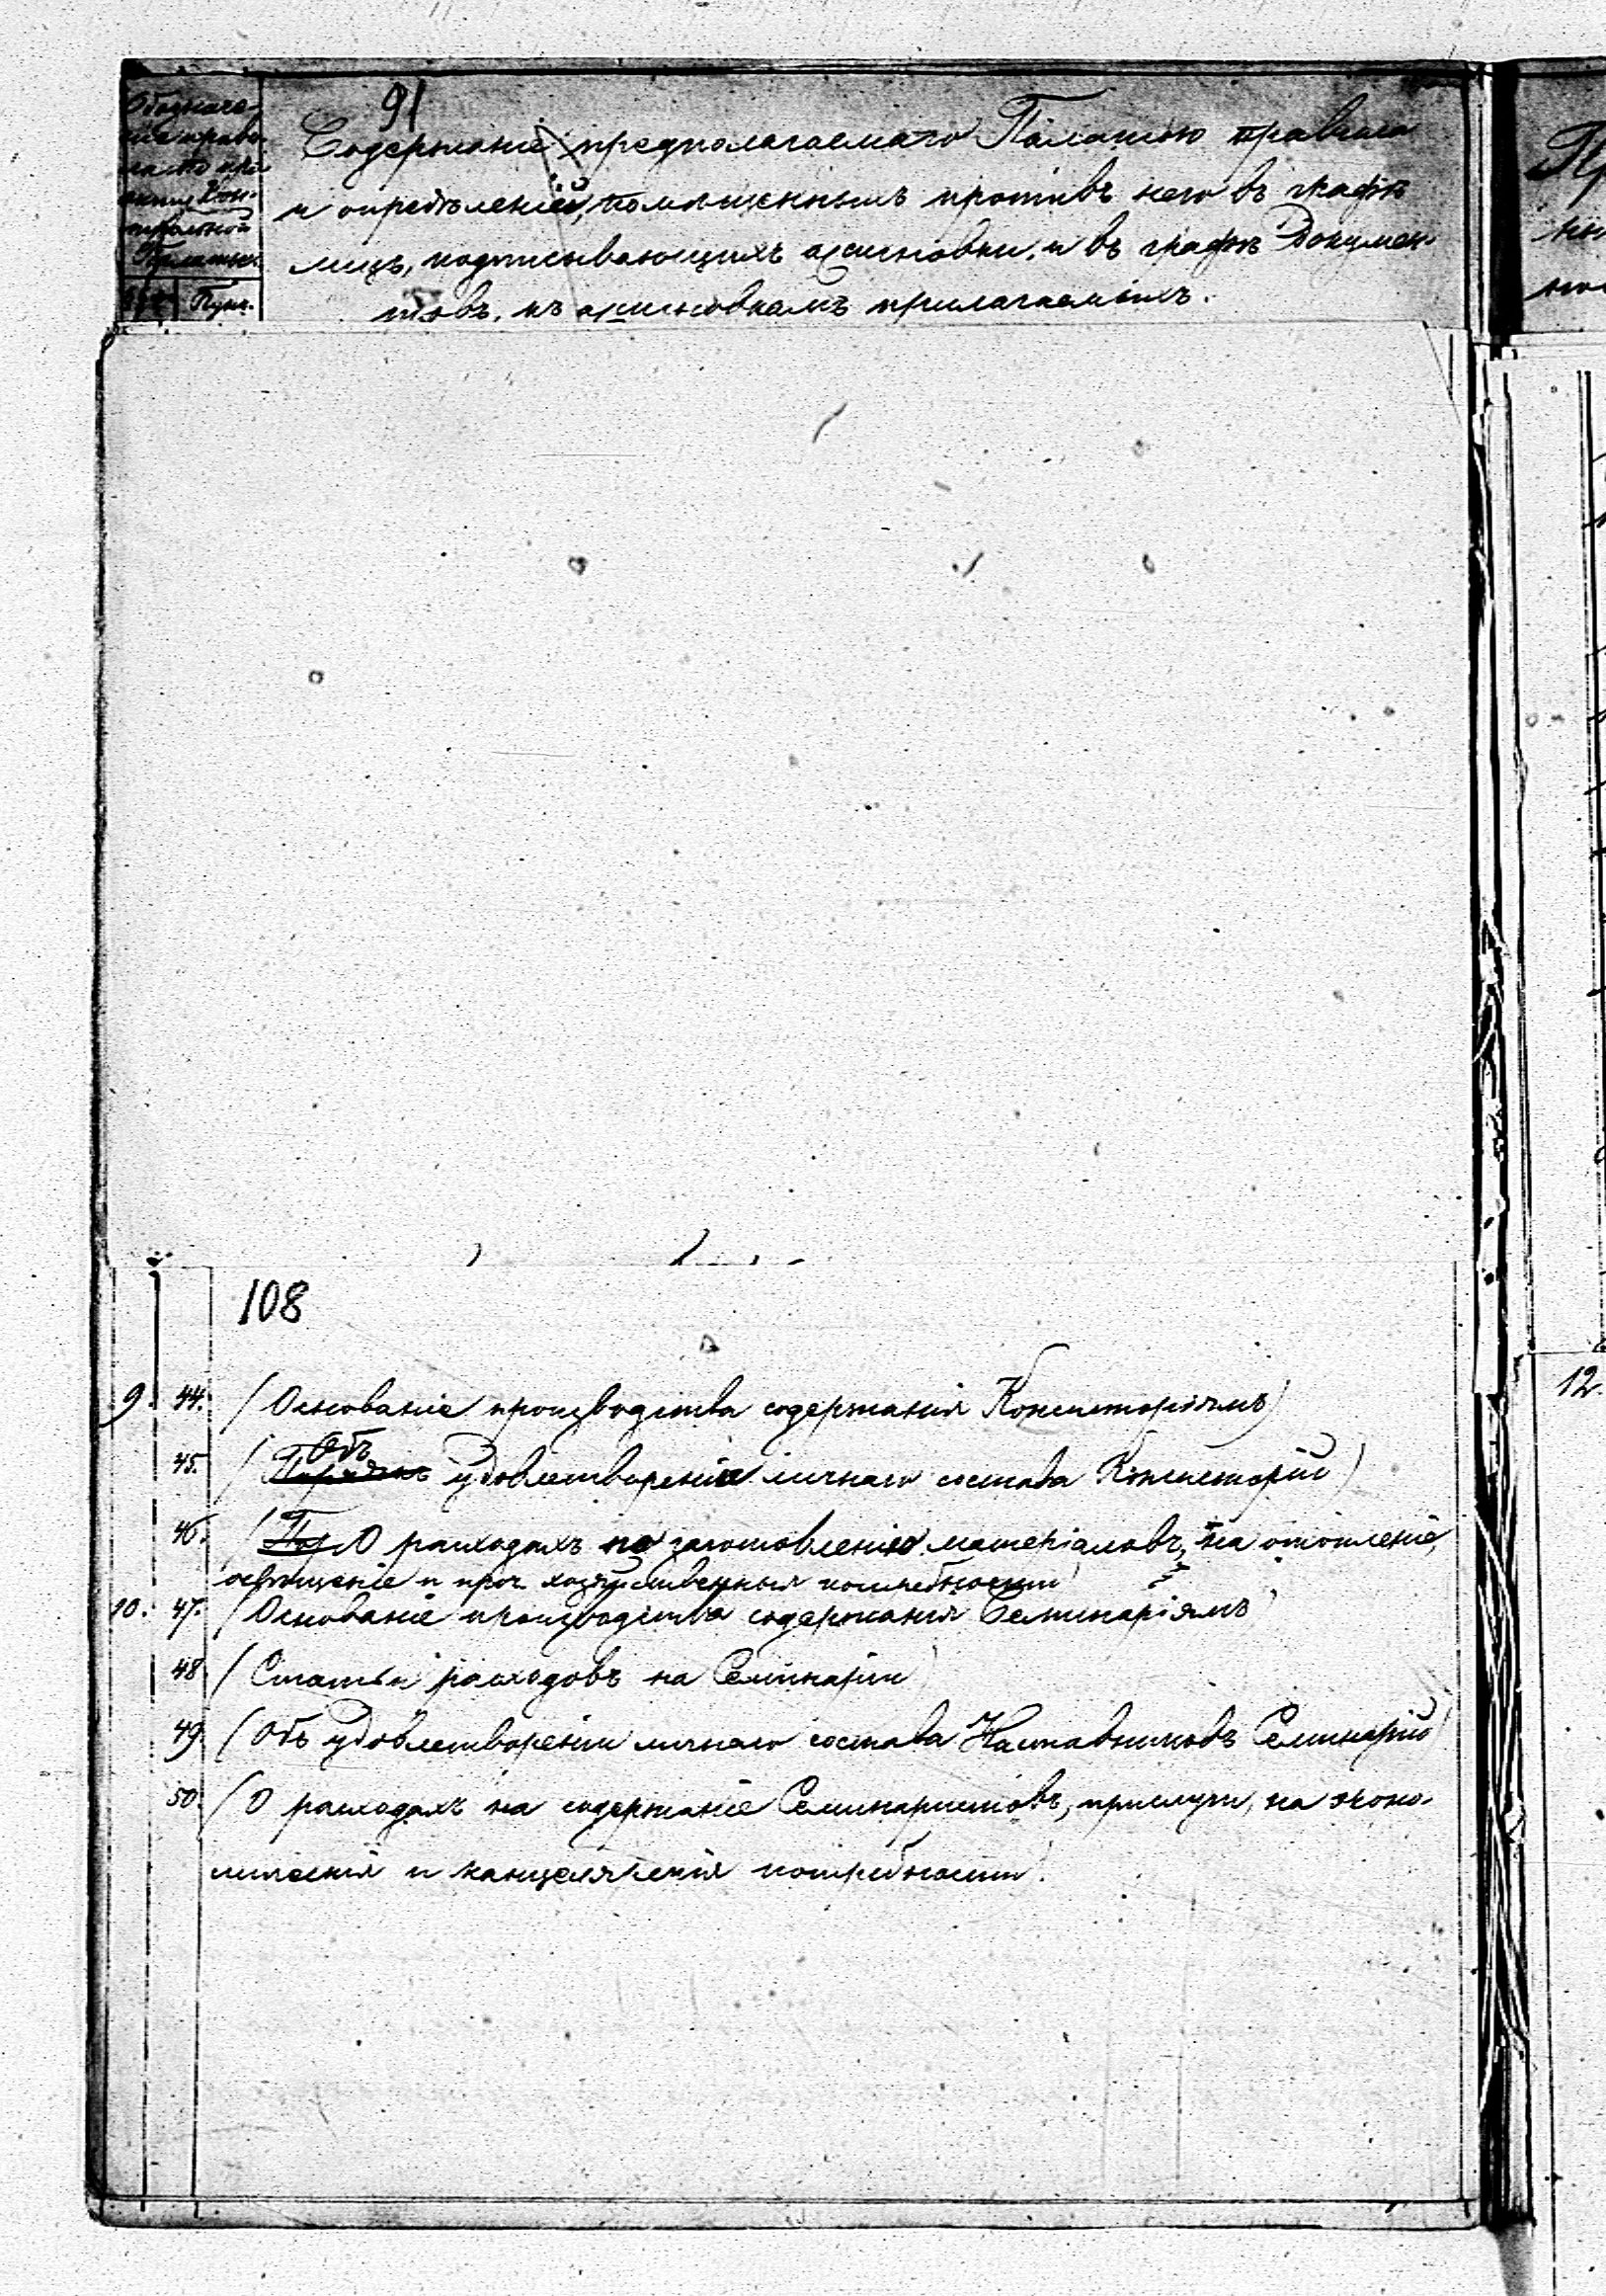 91
Обозначе-
ние прави-
ла по
Кон-
трольной
Палаты.
Пунк.
Содержаніе предполагаемаго Палатою правила
и опредѣленій, помѣщенныхъ противъ него въ графѣ
лицъ, подписывающихъ ассигновки, и въ графѣ Докумен-
товъ, къ ассигновкамъ прилагаемыхъ.
108
9. 44. (Основаніе производства содержанія Консисторіямъ)
45. (Порядокъ Объ удовлетвореніи личнаго состава Консисторій)
46. (Пор. О расходахъ по заготовленію матеріаловъ, на отопленіе,
освѣщеніе и проч. хозяйственныя потребности)
10. 47. (Основаніе производства содержанія Семинаріямъ)
48 (Статьи расходовъ на Семинаріи)
49. (Объ удовлетвореніи личнаго состава Наставниковъ Семинарій)
50. (О расходахъ на содержаніе Семинаристовъ, прислуги, на эконо-
мическія и канцелярскія потребности).
12.